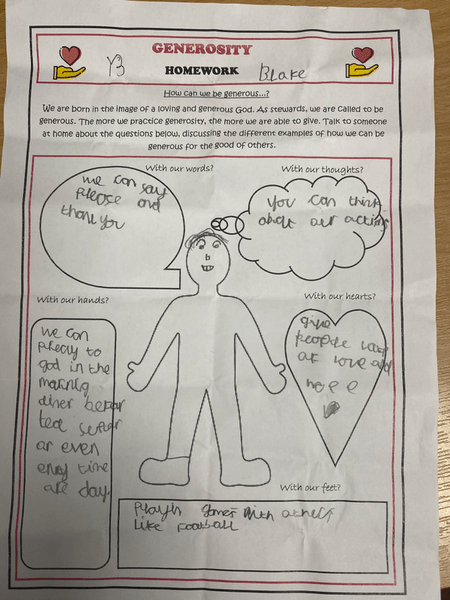 GENEROSITY
Y3 HOMEWORK Blake
How can we be generous...?
We are born in the image of a loving and generous God. As stewards, we are called to be
generous. The more we practice generosity, the more we are able to give. Talk to someone
at home about the questions below, discussing the different examples of how we can be
generous for the good of others.
With our words?
we can say
please and
thank you
With our thoughts?
you can think
about our action
With our hands?
we can
to
god in the
diner
or even
eney time
day.
With our hearts?
give
people
of love and
hope
With our feet?
games with
like football